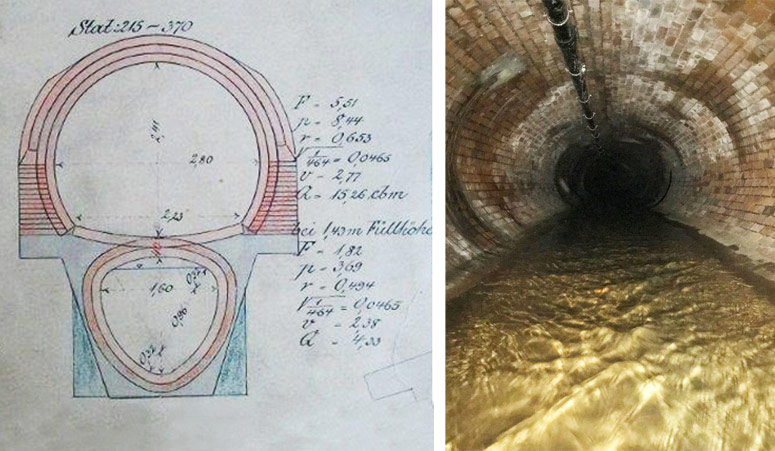 Stat: 215 – 370
F = 5,51
p = 8,44
r = 0,653
√1/464 = 0,0465
v = 2,77
Q = 15,26 cbm
bei 1,43 m Füllhöhe
F = 1,82
p = 3,69
r = 0,494
√1/464 = 0,0465
v = 2,38
Q = 4,33
2,41
2,80
2,23
1,60
0,96